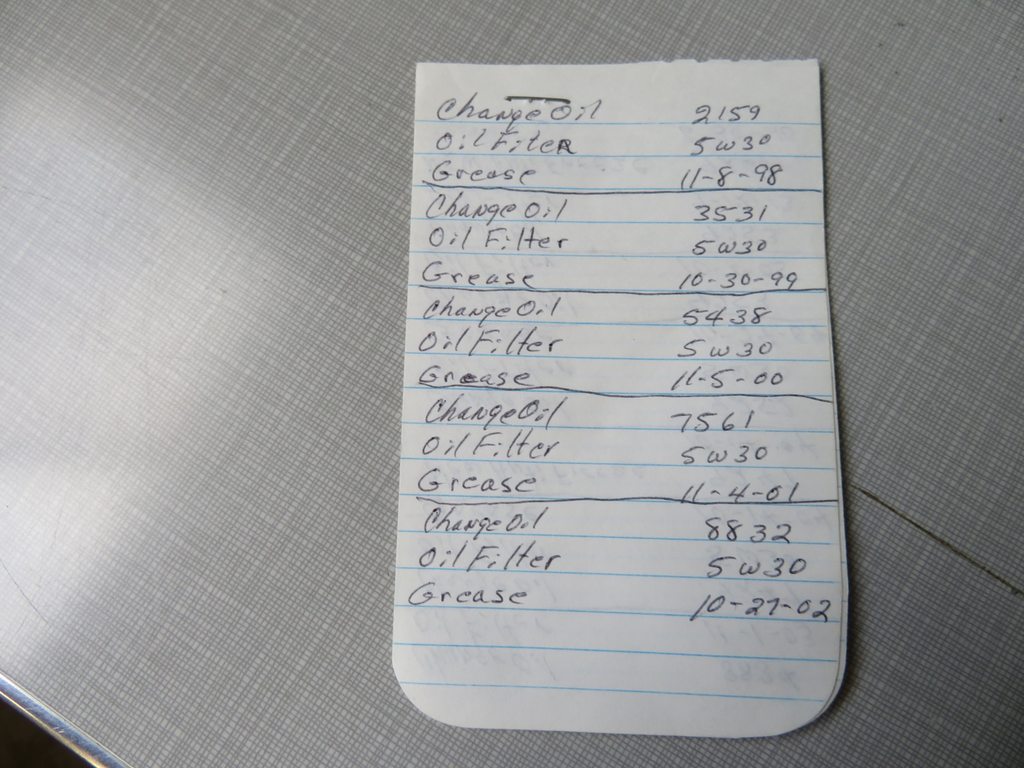 Change Oil 2159
Oil FilteR 5w30
Grease 11-8-98
Change Oil 3531
Oil Filter 5w30
Grease 10-30-99
Change Oil 5438
Oil Filter 5w30
Grease 11-5-00
Change Oil 7561
Oil Filter 5w30
Grease 11-4-01
Change Oil 8832
Oil Filter 5w30
Grease 10-27-02